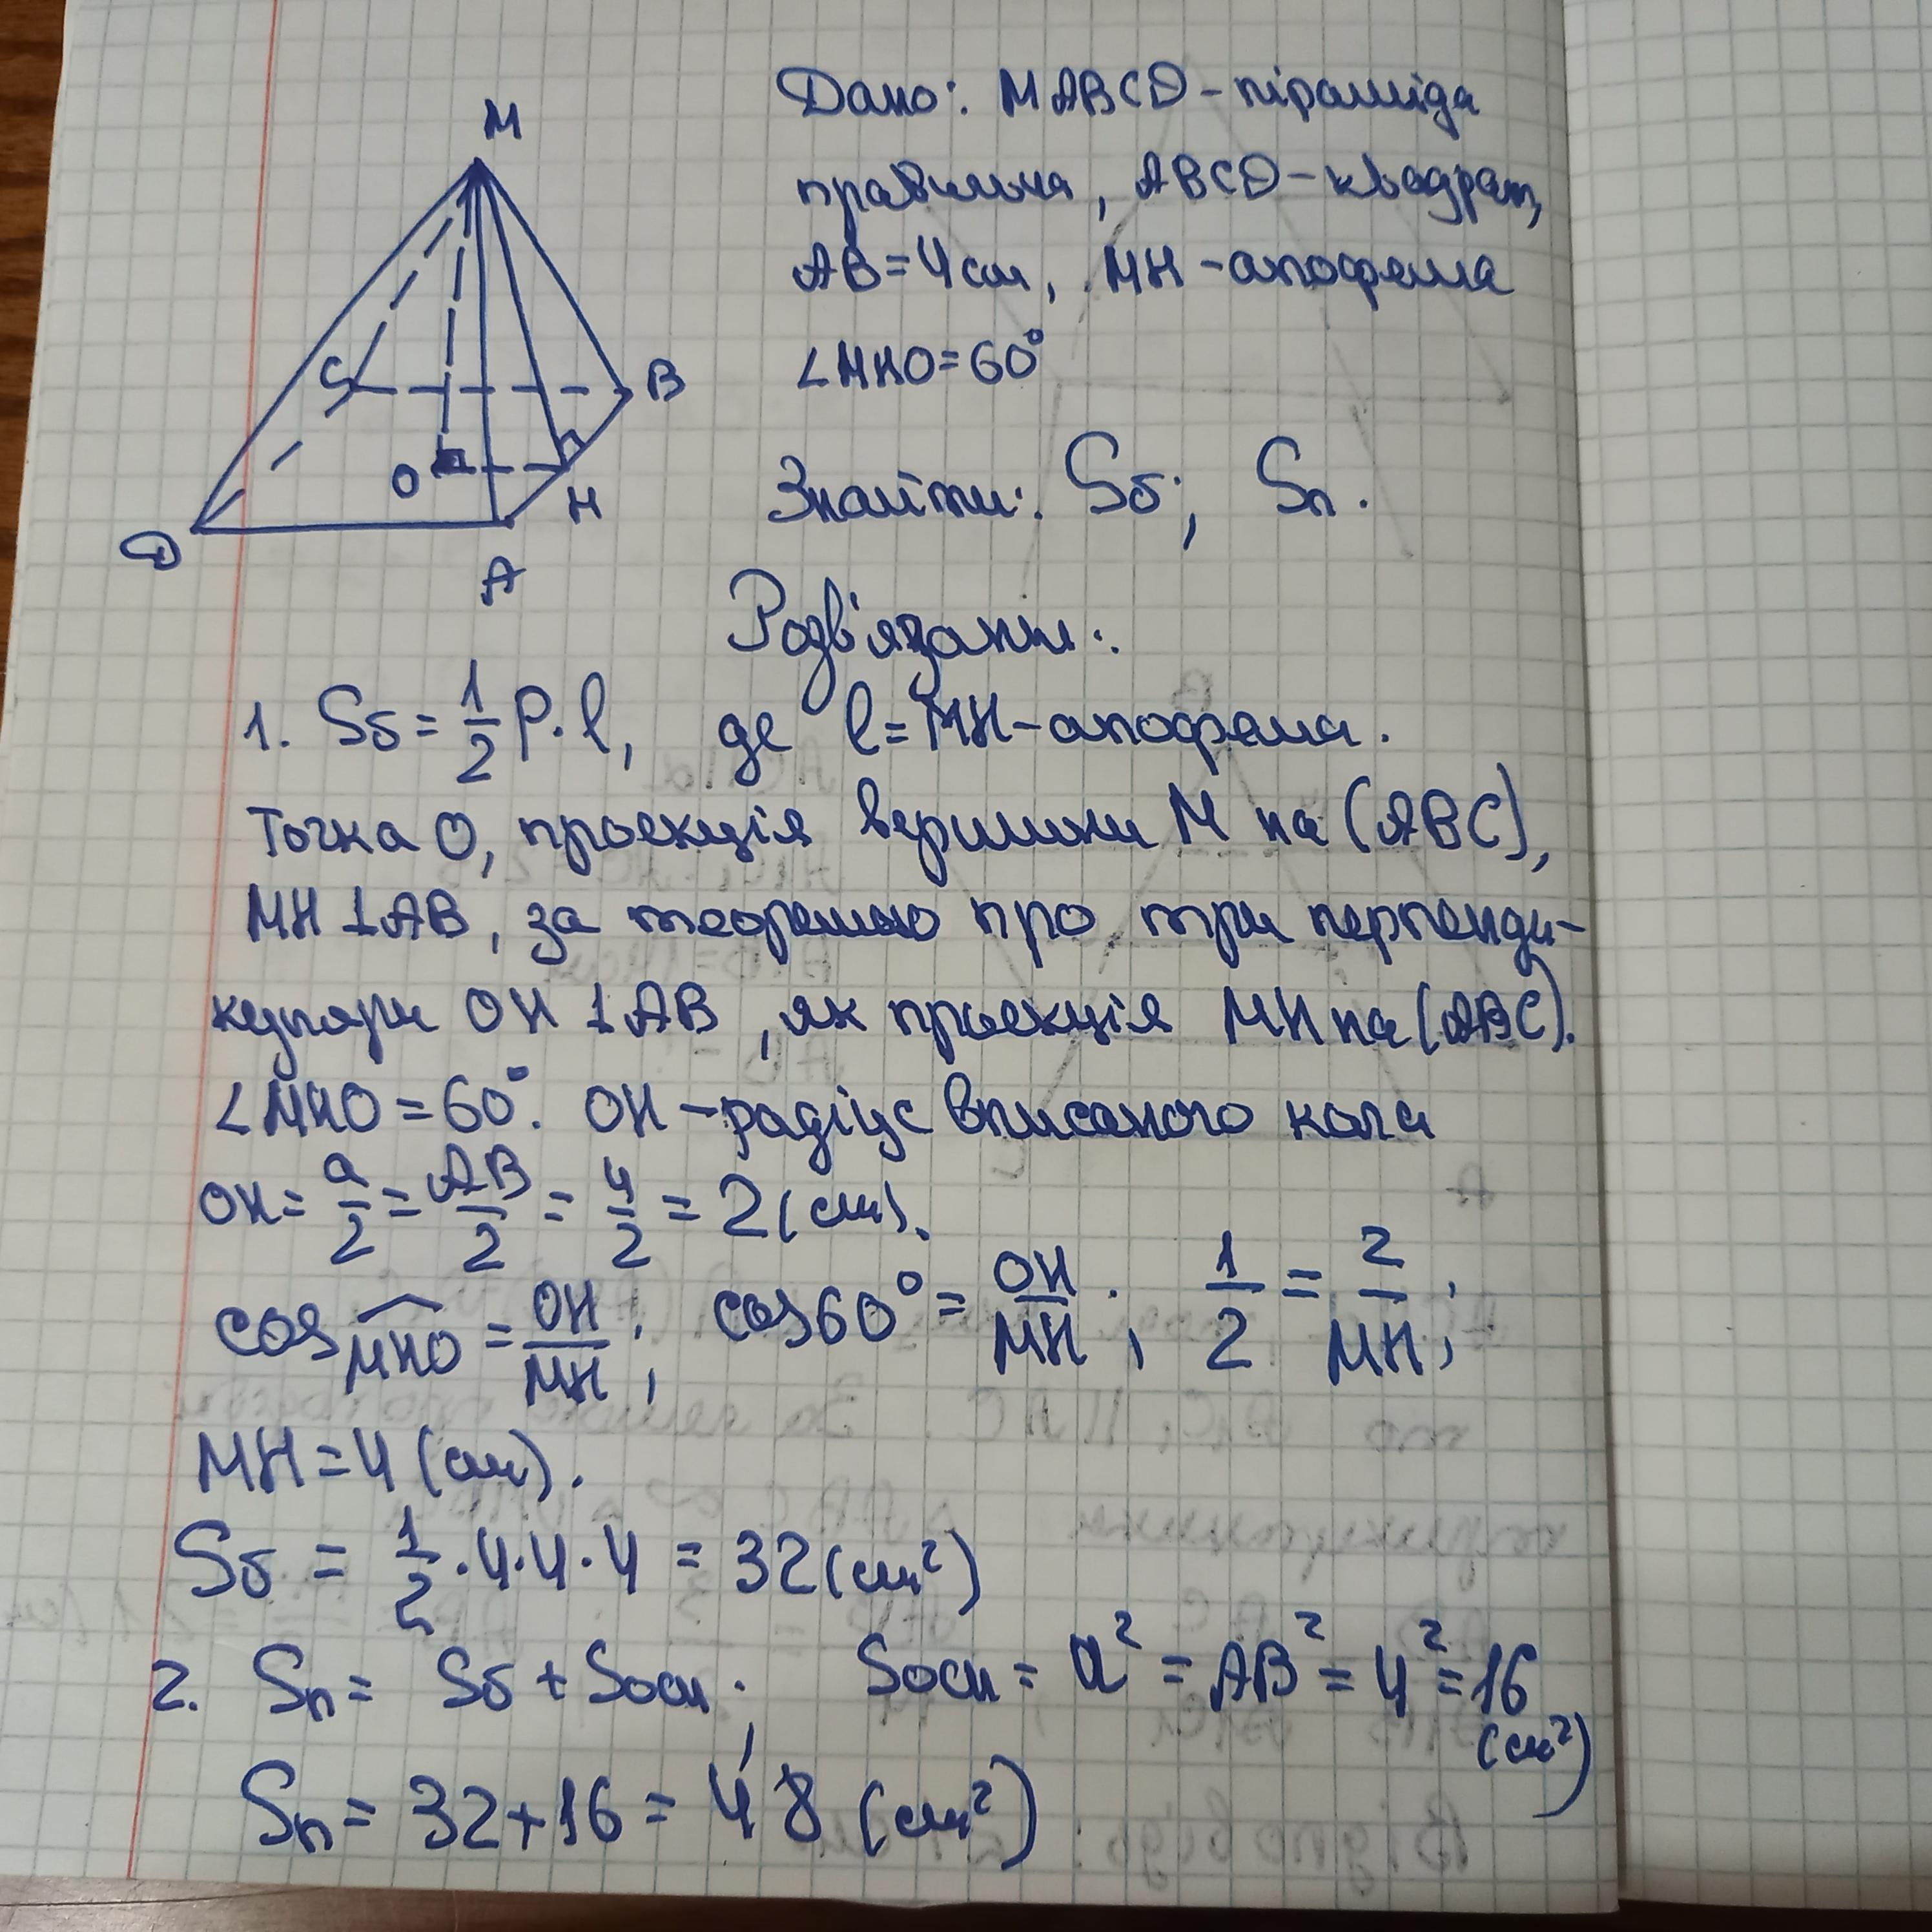 M
C
B
O
H
D
A
Дано: MABCD - піраміда
правильна, ABCD - квадрат,
AB = 4 см, MH - апофема
∠MHO = 60°
Знайти: Sб; Sп.
Розв'язання:
1. Sб = 1/2 P · l, де l = MH - апофема.
Точка O, проекція вершини M на (ABC),
MH ⊥ AB, за теоремою про три перпенди-
куляри OH ⊥ AB, як проекція MH на (ABC).
∠MHO = 60°. OH - радіус вписаного кола
OH = a/2 = AB/2 = 4/2 = 2 (см).
cos MHO = OH/MH; cos 60° = OH/MH; 1/2 = 2/MH;
MH = 4 (см).
Sб = 1/2 · 4 · 4 · 4 = 32 (см²)
2. Sп = Sб + Sосн; Sосн = a² = AB² = 4² = 16
(см²)
Sп = 32 + 16 = 48 (см²)